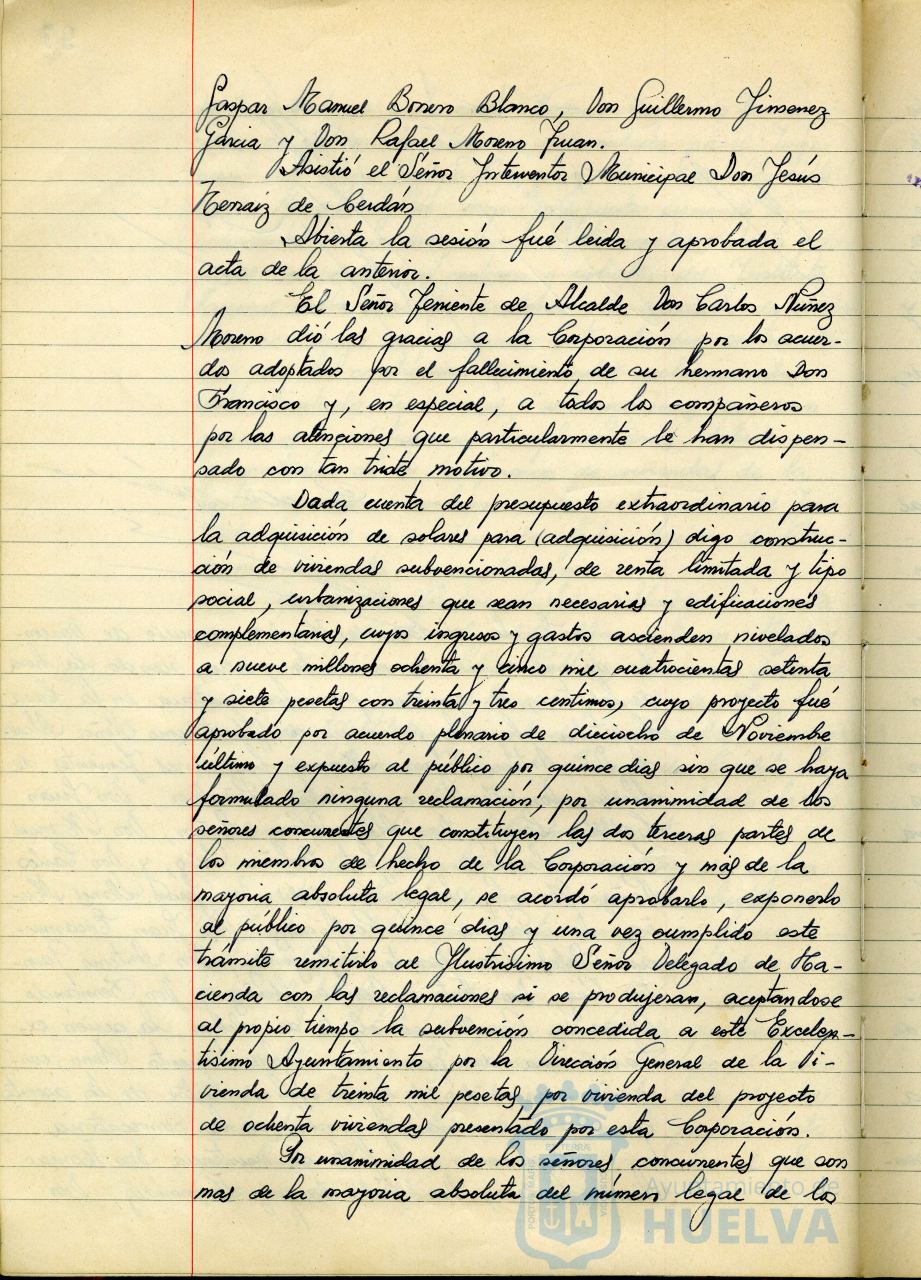 Gaspar Manuel Borrero Blanco, Don Guillermo Jimenez
Garcia y Don Rafael Moreno Fruan.
Asistió el Señor Interventor Municipal Don Jesús
de Cerdán
Abierta la sesión fué leida y aprobada el
acta de la anterior.
El Señor Teniente de Alcalde Don Carlos Nuñez
Moreno dió las gracias a la Corporación por los acuer-
dos adoptados por el fallecimiento de su hermano Don
Francisco y, en especial, a todos los compañeros
por las atenciones que particularmente le han dispen-
sado con tan triste motivo.
Dada cuenta del presupuesto extraordinario para
la adquisición de solares para (adquisición) digo construc-
ción de viviendas subvencionadas, de renta limitada y tipo
social, urbanizaciones que sean necesarias y edificaciones
complementarias, cuyos ingresos y gastos ascienden nivelados
a nueve millones ochenta y cinco mil cuatrocientas setenta
y siete pesetas con treinta y tres centimos, cuyo proyecto fué
aprobado por acuerdo plenario de dieciocho de Noviembre
último y expuesto al público por quince dias sin que se haya
formulado ninguna reclamación, por unanimidad de los
señores concurrentes que constituyen las dos terceras partes de
los miembros de hecho de la Corporación y más de la
mayoria absoluta legal, se acordó aprobarlo, exponerlo
al público por quince dias y una vez cumplido este
trámite remitirlo al Ilustrisimo Señor Delegado de Ha-
cienda con las reclamaciones si se produjeran, aceptandose
al propio tiempo la subvención concedida a este Excelen-
tisimo Ayuntamiento por la Dirección General de la Vi-
vienda de treinta mil pesetas, por vivienda del proyecto
de ochenta viviendas presentado por esta Corporación.
Por unanimidad de los señores concurrentes que son
mas de la mayoria absoluta del número legal de los
Ayuntamiento de
HUELVA